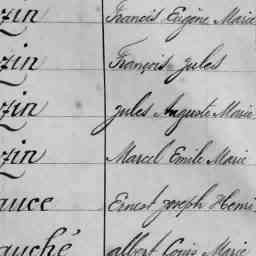 zin Francis Eugène Marie
zin François Jules
zin Jules Auguste Marie
zin Marcel Emile Marie
auce Ernest Joseph Henri
auché albert Louis Marie